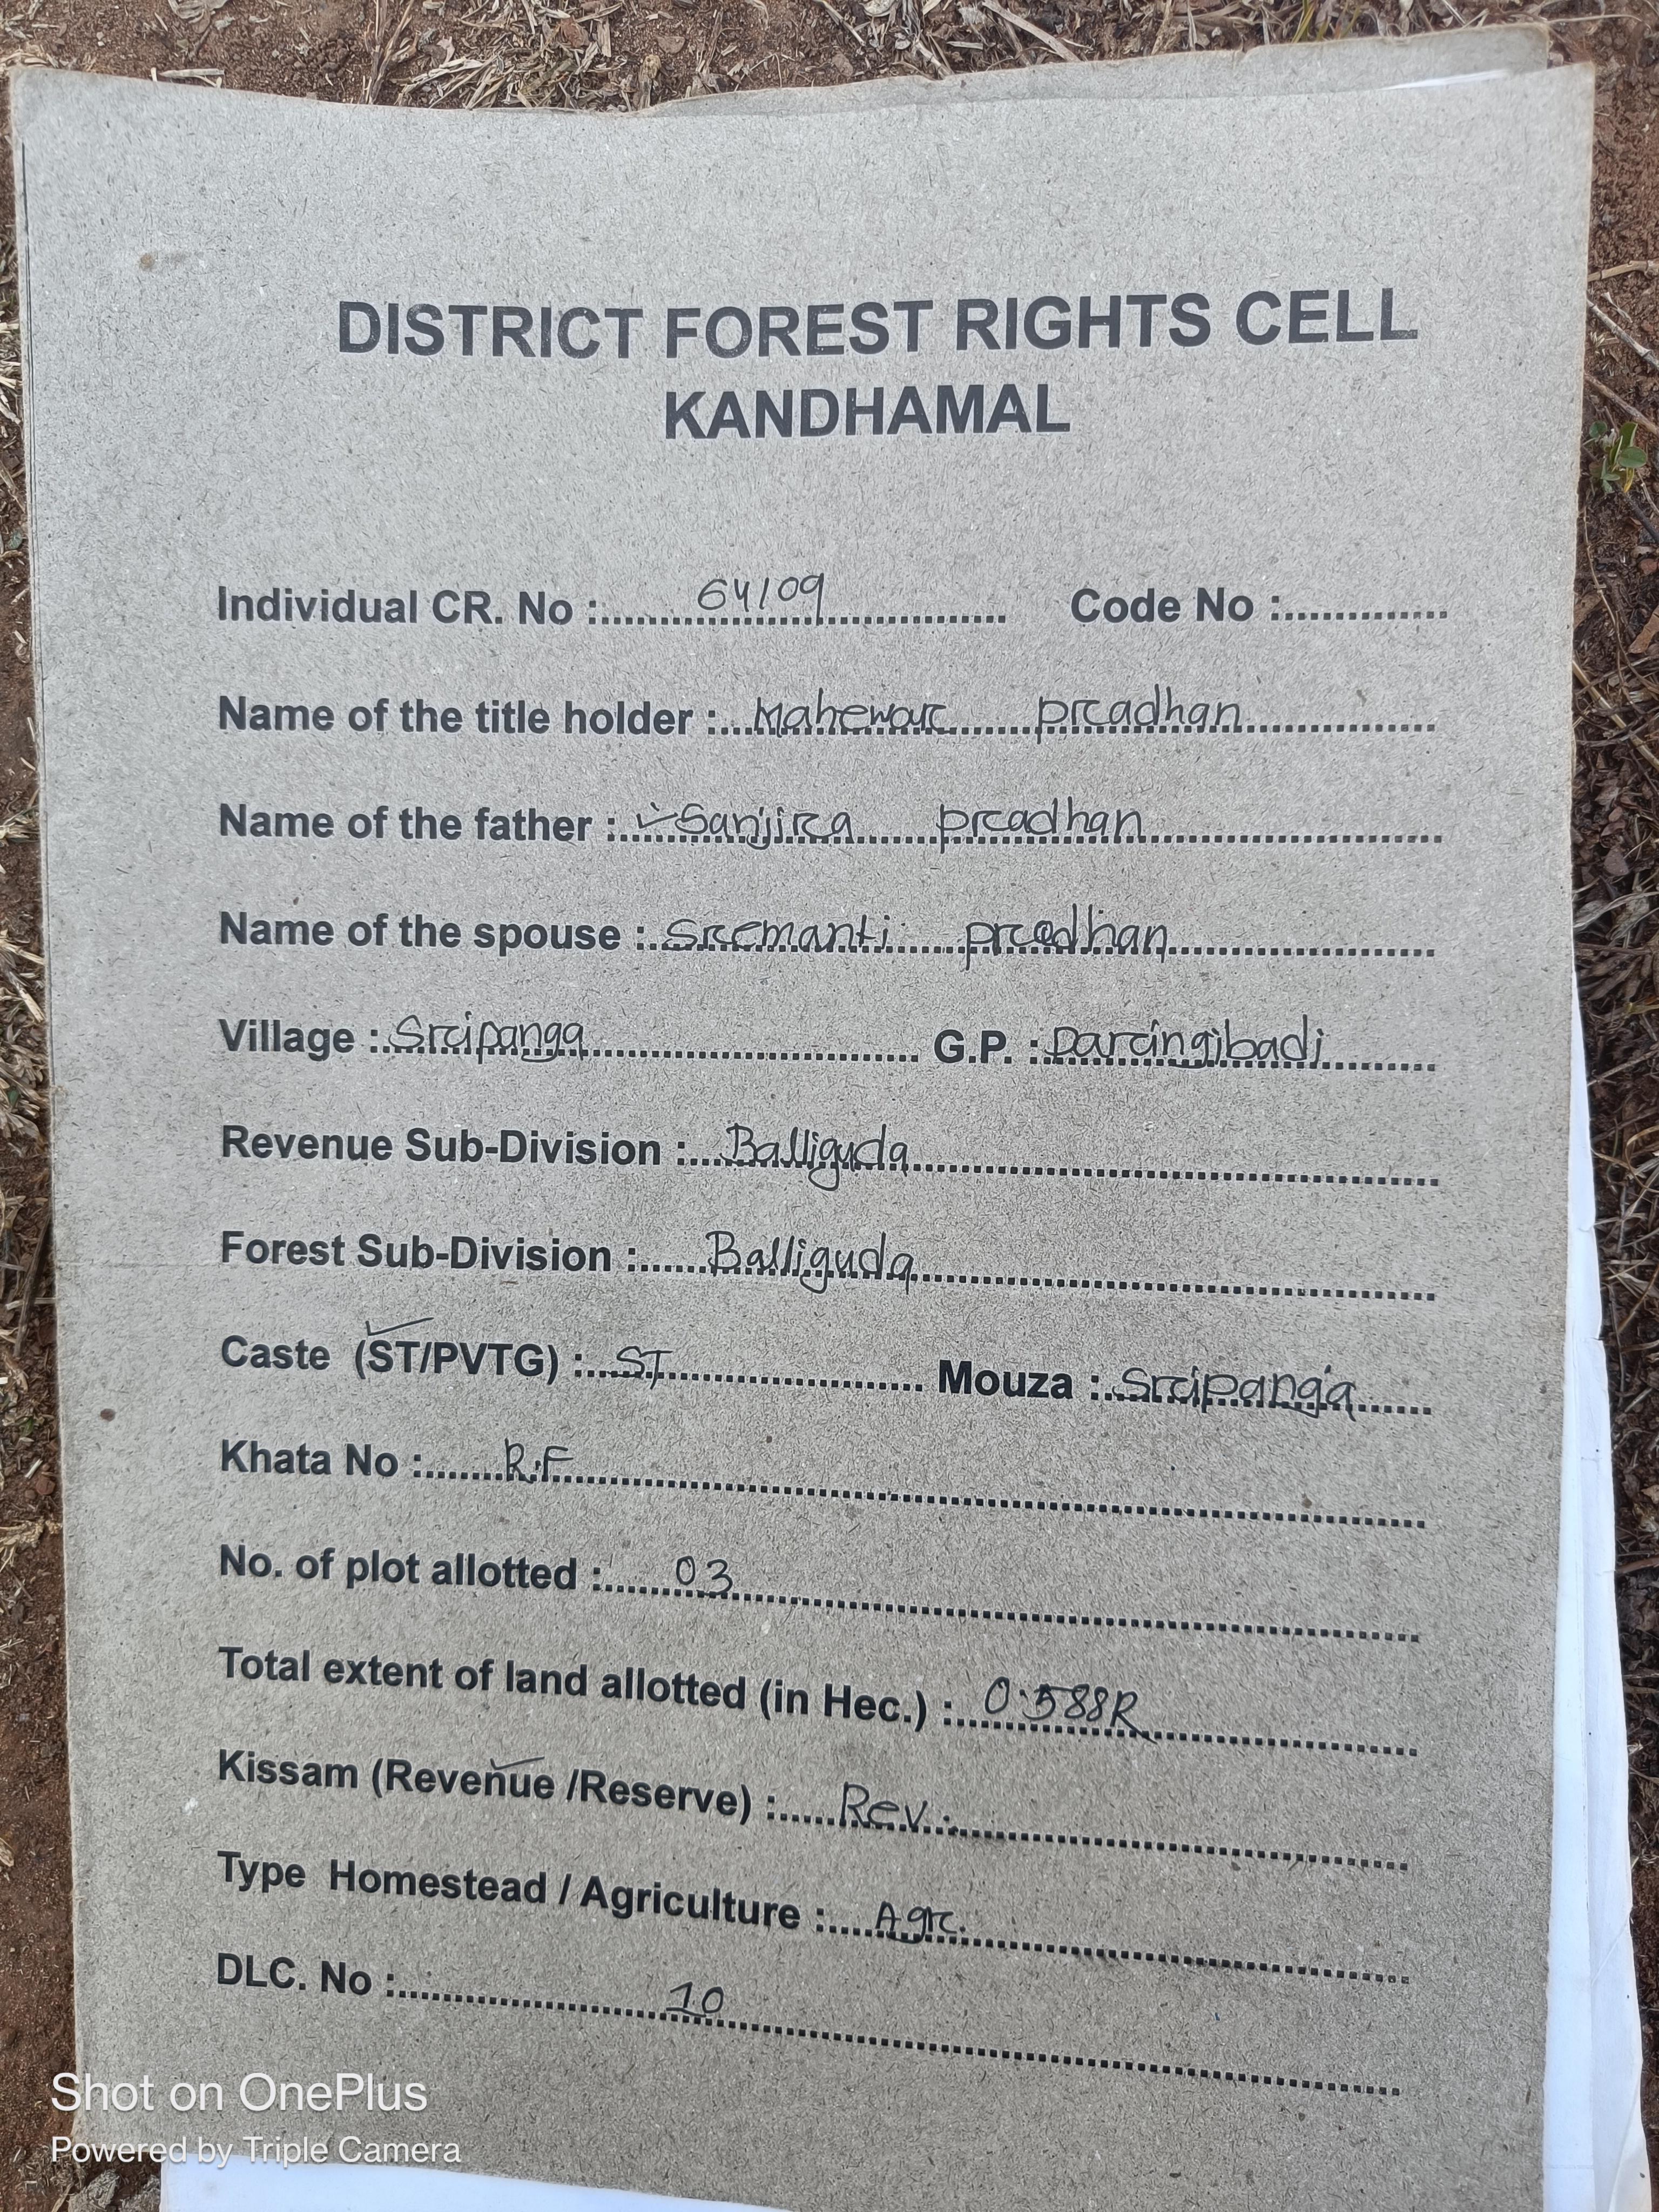 DISTRICT FOREST RIGHTS CELL
KANDHAMAL
Individual CR. No : 64/09 Code No :
Name of the title holder : Mahewar pradhan
Name of the father : Sanjira pradhan
Name of the spouse : Sremanti pradhan
Village : Sripanga G.P. : Daringibadi
Revenue Sub-Division : Balliguda
Forest Sub-Division : Balliguda
Caste (ST/PVTG) : ST Mouza : Sripanga
Khata No : R.F
No. of plot allotted : 03
Total extent of land allotted (in Hec.) : 0.588R
Kissam (Revenue /Reserve) : Rev.
Type Homestead / Agriculture : Agr.
DLC. No : 10
Shot on OnePlus
Powered by Triple Camera